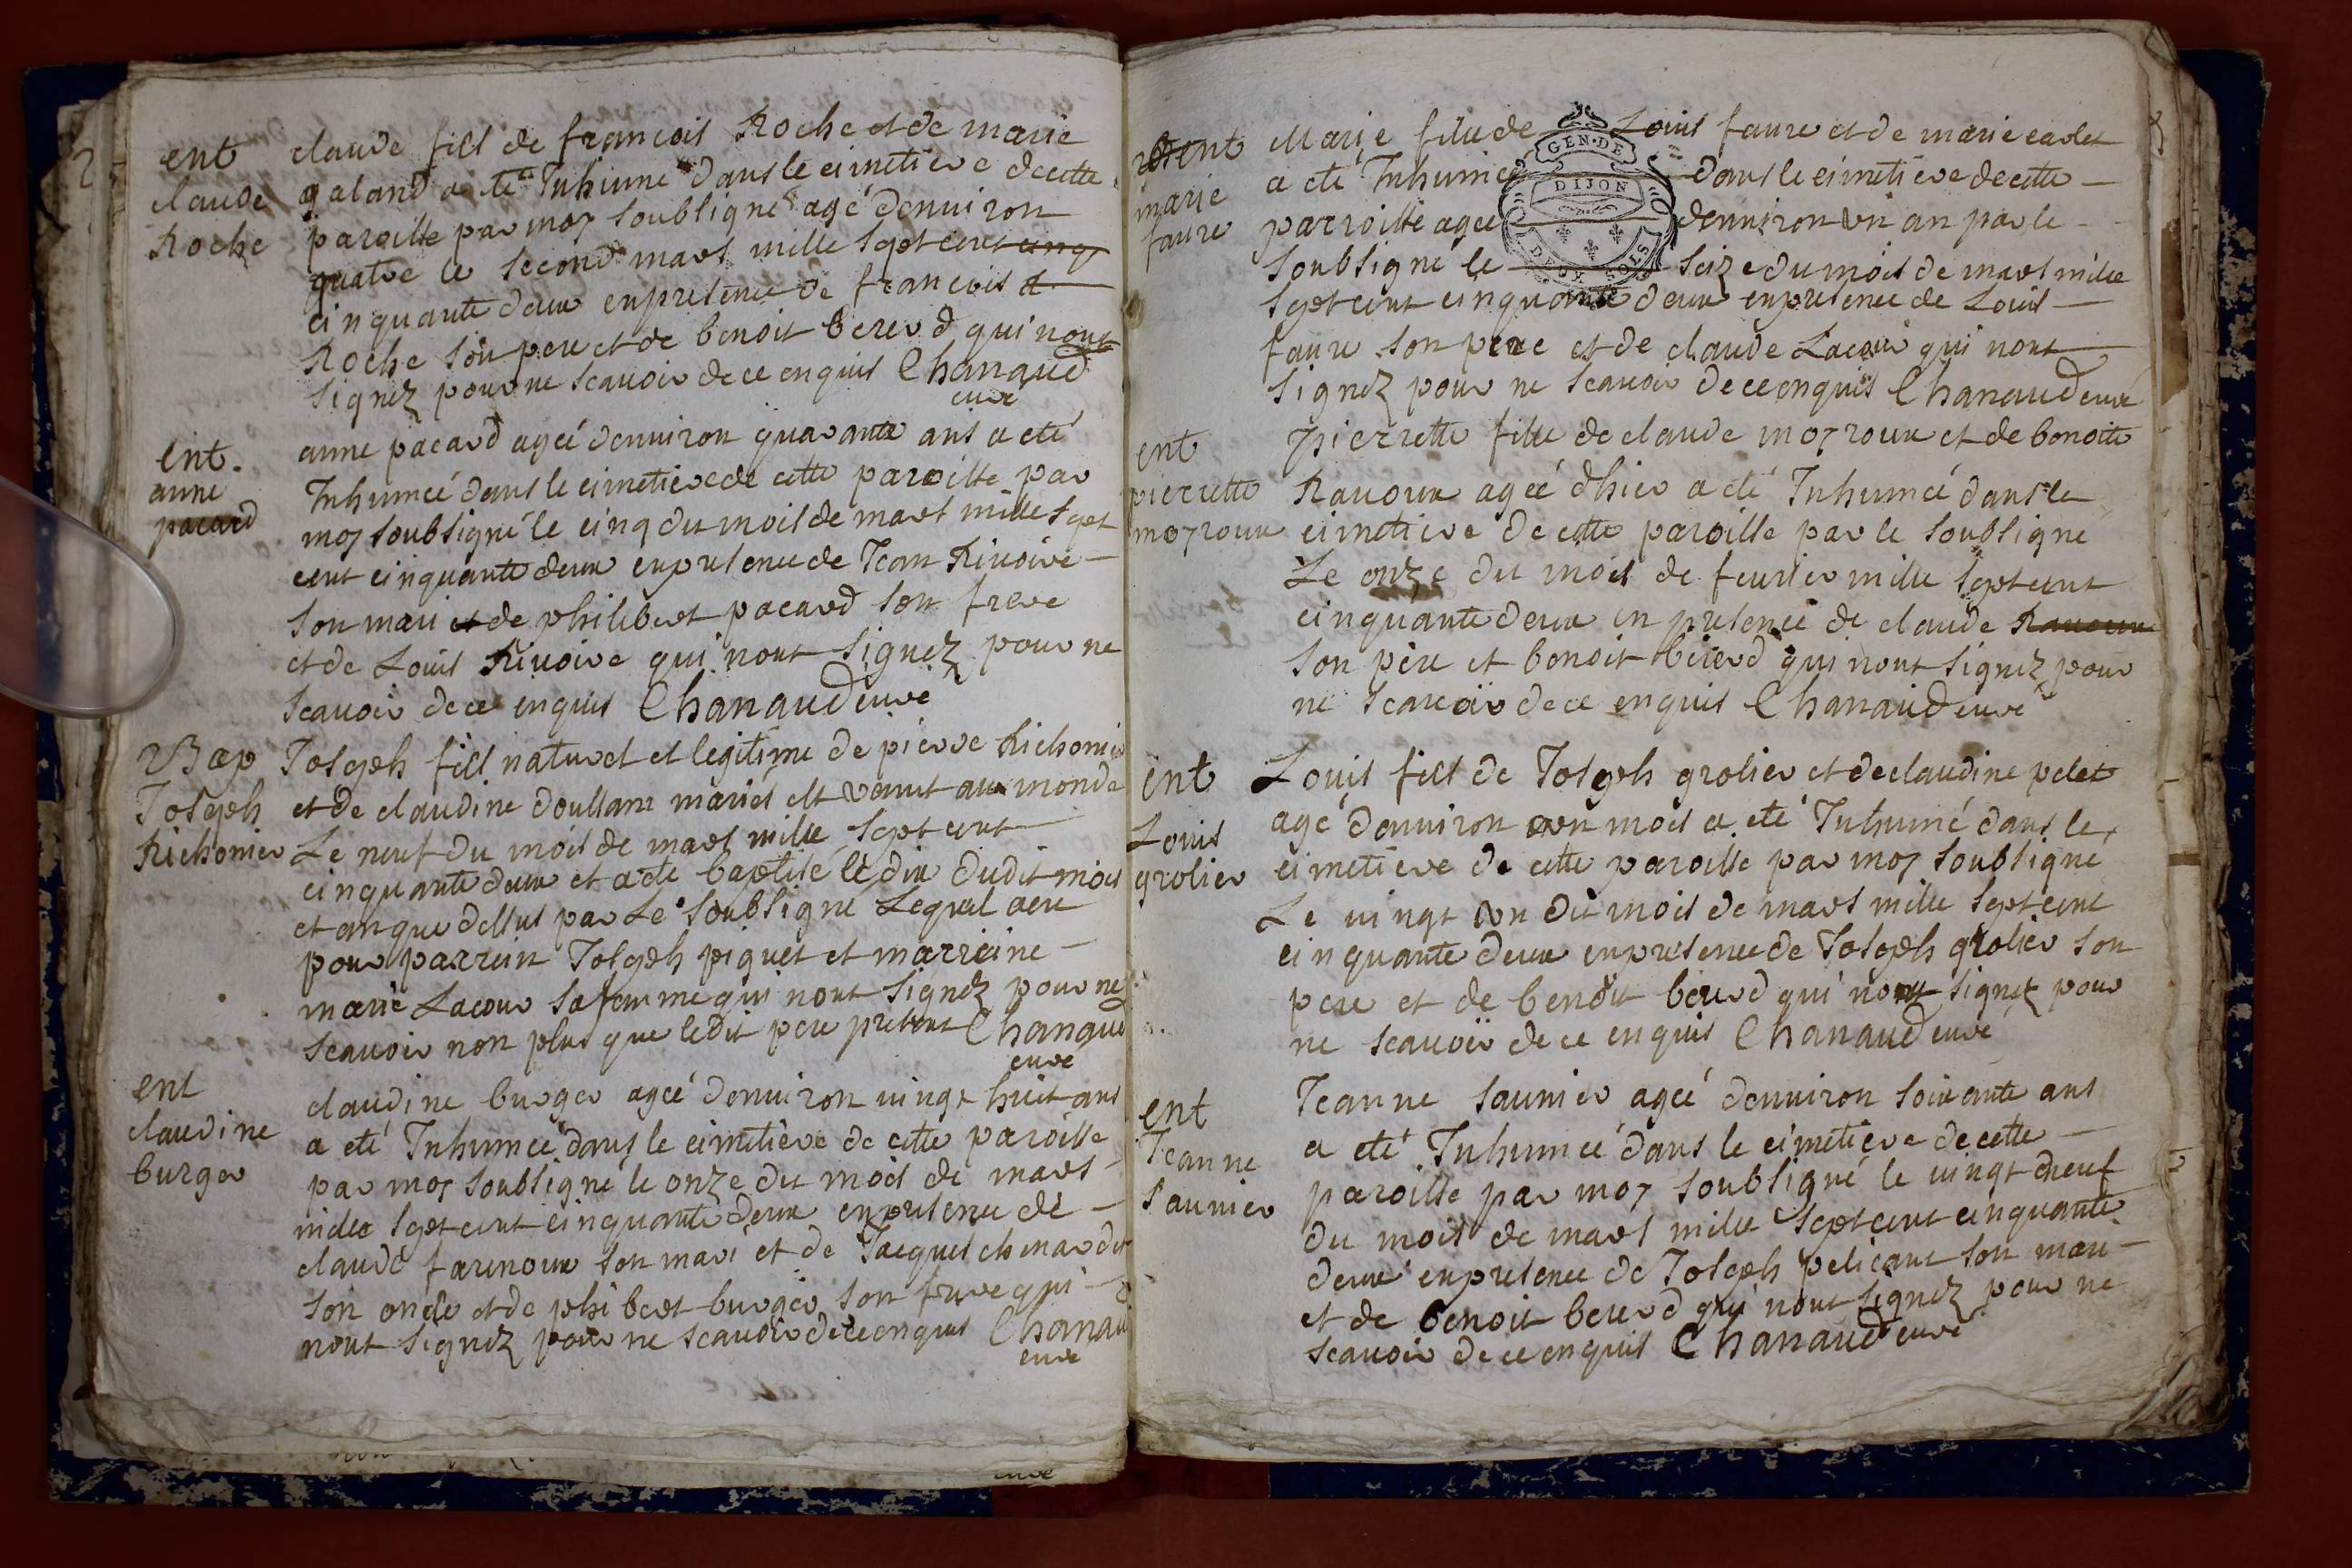 ent
claude
Roche
claude fils de francois Roche et de marie
galand a été Inhumé dans le cimetiere decette
paroisse par moy soubsigné agé denuiron
quatre le second mars mille sept cent cinq
cinquante deux enpresence de francois d
Roche son pere et de benoit bererd qui nont
signez pour ne scauoir de ce enquis Chanaud
curé
ent.
anne
pacard
anne pacard ageé denuiron quarante ans a eté
Inhumeé dans le cimetierede cette paroisse par
moy soubsigné le cinq du mois de mars mille sept
cent cinquante deux enpresence de Jean Riuoire
son mari et de philibert pacard son frere
et de Louis Riuoire qui nont signez pour ne
scauoir dece enquis Chanaud curé
Bap
Joseph
Richonier
Joseph fils naturel et legitime de pierre Richonier
et de claudine doussam mariés est venut au monde
Le neuf du mois de mars mille sept cent
cinquante deux et a eté baptisé le dix dudit mois
et an que dessus par Le soubsigné Lequel aeu
pour parrein Joseph piquet et marreine
marie Lacour sa femme qui nont signez pour ne
scauoir non plus que ledit pere present Chanaud
curé
ent
claudine
burger
claudine burger ageé denuiron uingt huit ans
a eté Inhumeé dans le cimetiere de cette paroisse
par moy soubsigné le onze du mois de mars
mille sept cent cinquante deux enpresence de
claude farenoux son mari et de Jacques chenardet
son oncle et de phibert burger son frere qui
nont signez pour ne scauoir dece enquis Chanau
curé
ent
marie
faure
Marie fille de Louis faure et de marie cadet
a eté Inhumeé dans le cimetiere decette
parroisse ageé denuiron un an par le
soubsigné le seize du mois de mars mille
sept cent cinquante deux enpresence de Louis
faure son pere et de claude Lacour qui nont
signez pour ne scauoir dece enquis Chanaud curé
GEN·DE
DIJON
DEUX SOLS
ent
pierrette
moyroux
pierrette fille de claude moyroux et de benoite
Rauoux ageé dhier a eté Inhumeé dans le
cimetiere de cette paroisse par le soubsigné
Le onze du mois de feurier mille sept cent
cinquante deux en presence de claude Rauoux
son père et benoit bererd qui nont signez pour
ne scauoir de ce enquis Chanaud curé
ent
Louis
grolier
Louis fils de Joseph grolier et declaudine pelet
agé denuiron un mois a eté Inhumé dans le
cimetiere de cette paroisse par moy soubsigné
Le uingt un du mois de mars mille sept cent
cinquante deux enpresence de Joseph grolier son
pere et de benoit bererd qui nont signez pour
ne scauoir de ce enquis Chanaud curé
ent
Jeanne
saunier
Jeanne saunier ageé denuiron soixante ans
a eté Inhumeé dans le cimetiere decette
paroisse par moy soubsigné le uingt neuf
du mois de mars mille sept cent cinquante
deux enpresence de Joseph pelicant son mari
et de benoit bererd qui nont signez pour ne
scauoir de ce enquis Chanaud curé